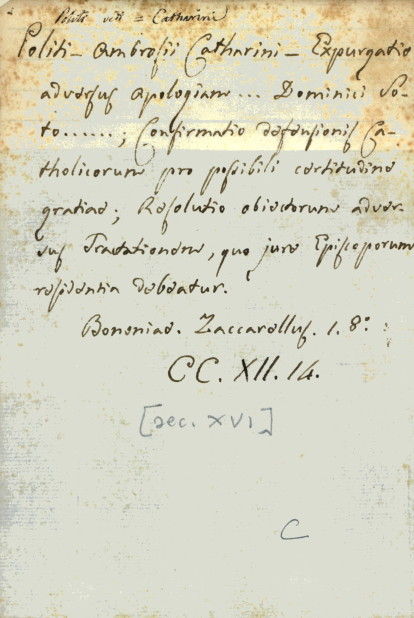 Politi vedi = Catharini
Politi - Ambrosii Catharini - Expurgatio
adversus Apologiam... Dominici So-
to......; Confirmatio defensionis Ca-
tholicorum pro possibili certitudine
gratiae; Resolutio obiectorum adver-
sus Tractationem, quo jure Episcoporum
residentia debeatur.
Bononiae. Zaccarellus. 1. 8º.
CC. XII. 14.
[sec. XVI]
C